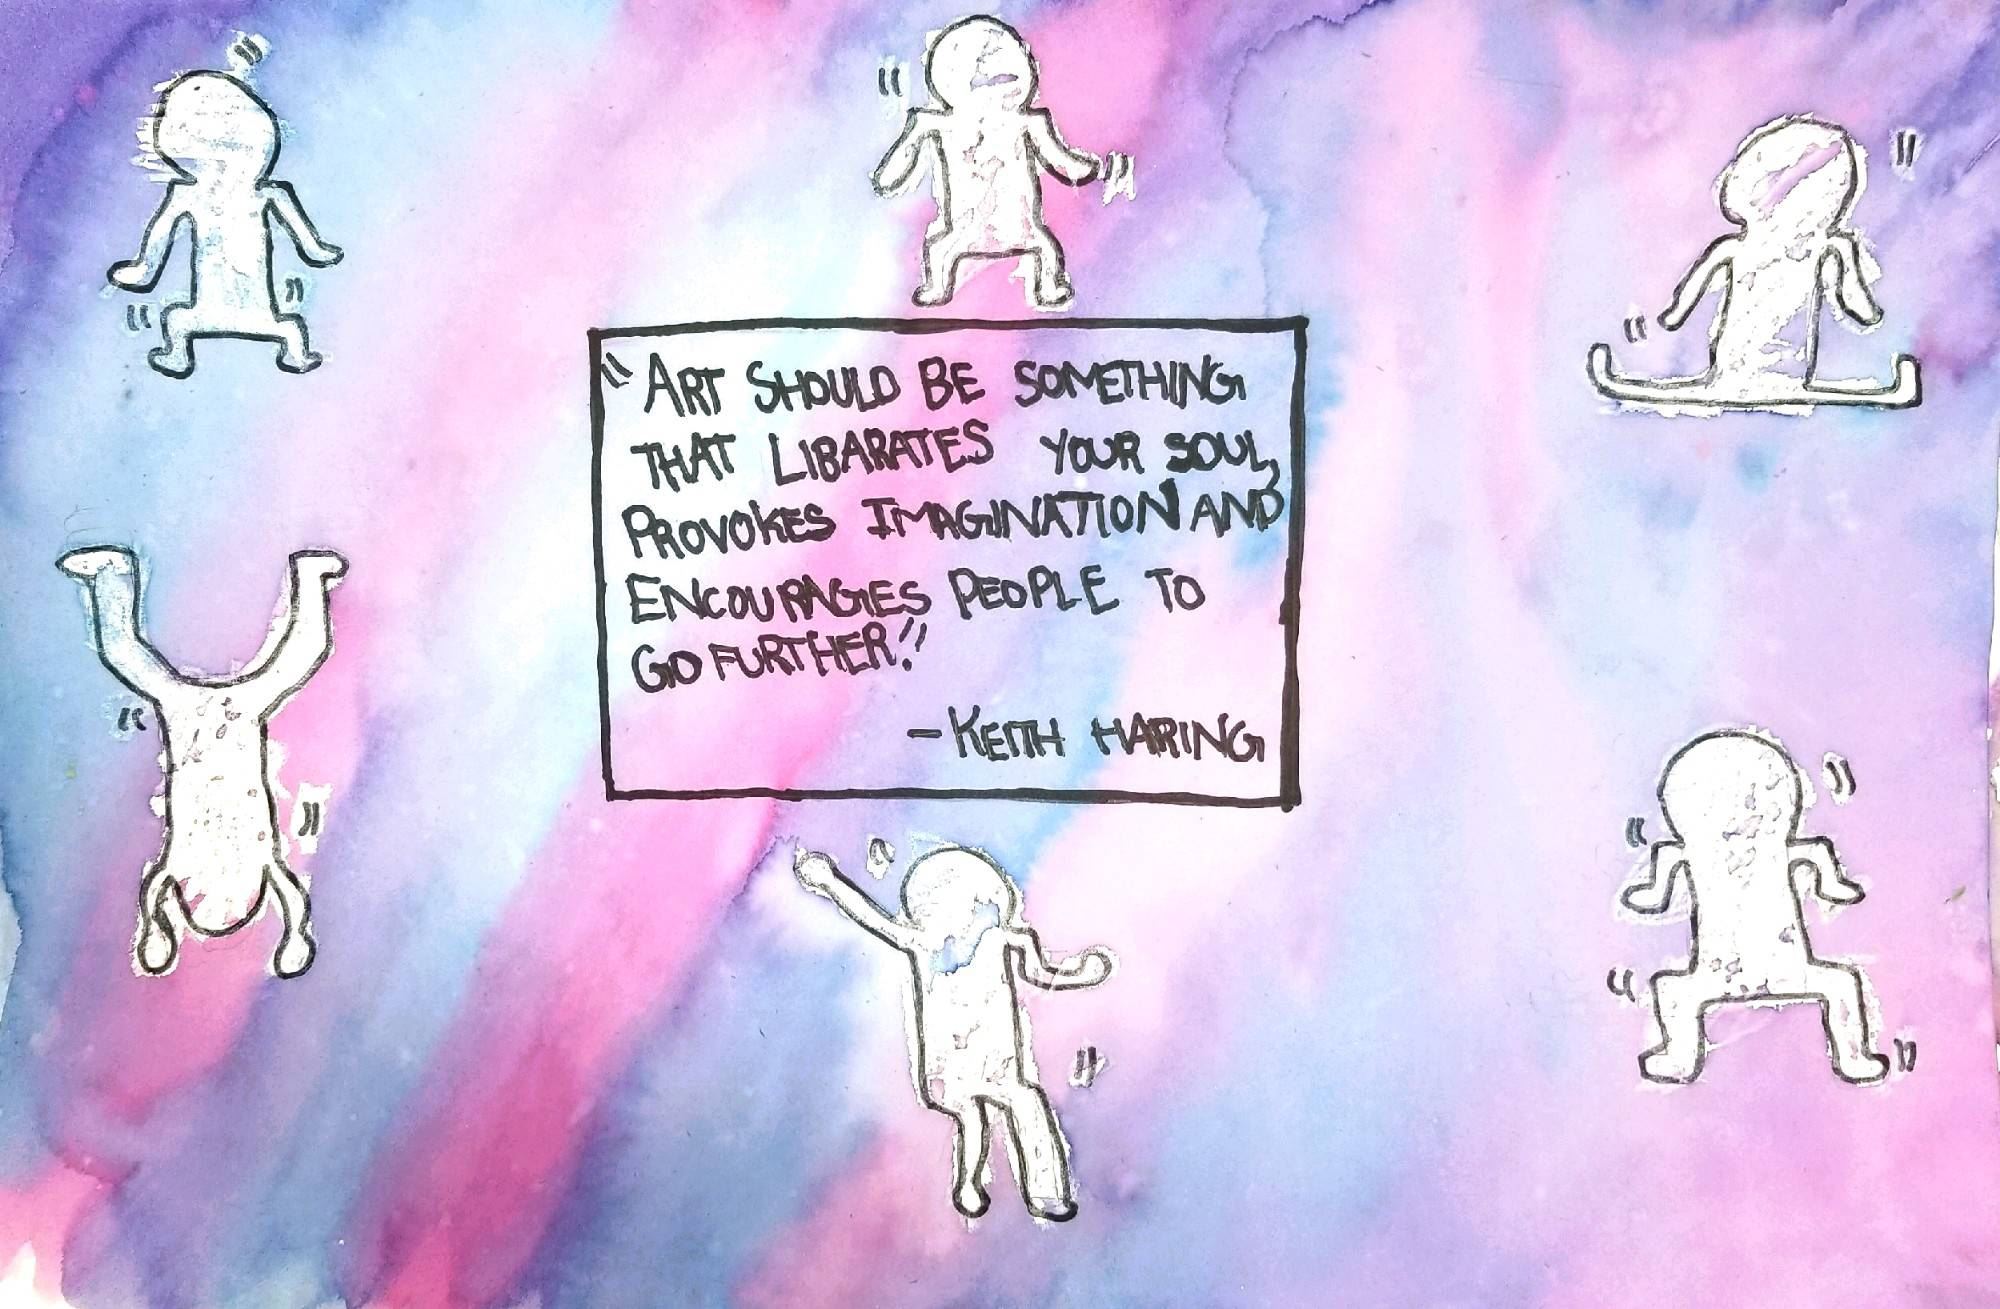 "ART SHOULD BE SOMETHING
THAT LIBARATES YOUR SOUL,
PROVOKES IMAGINATION AND
ENCOURAGES PEOPLE TO
GO FURTHER."
-KEITH HARING